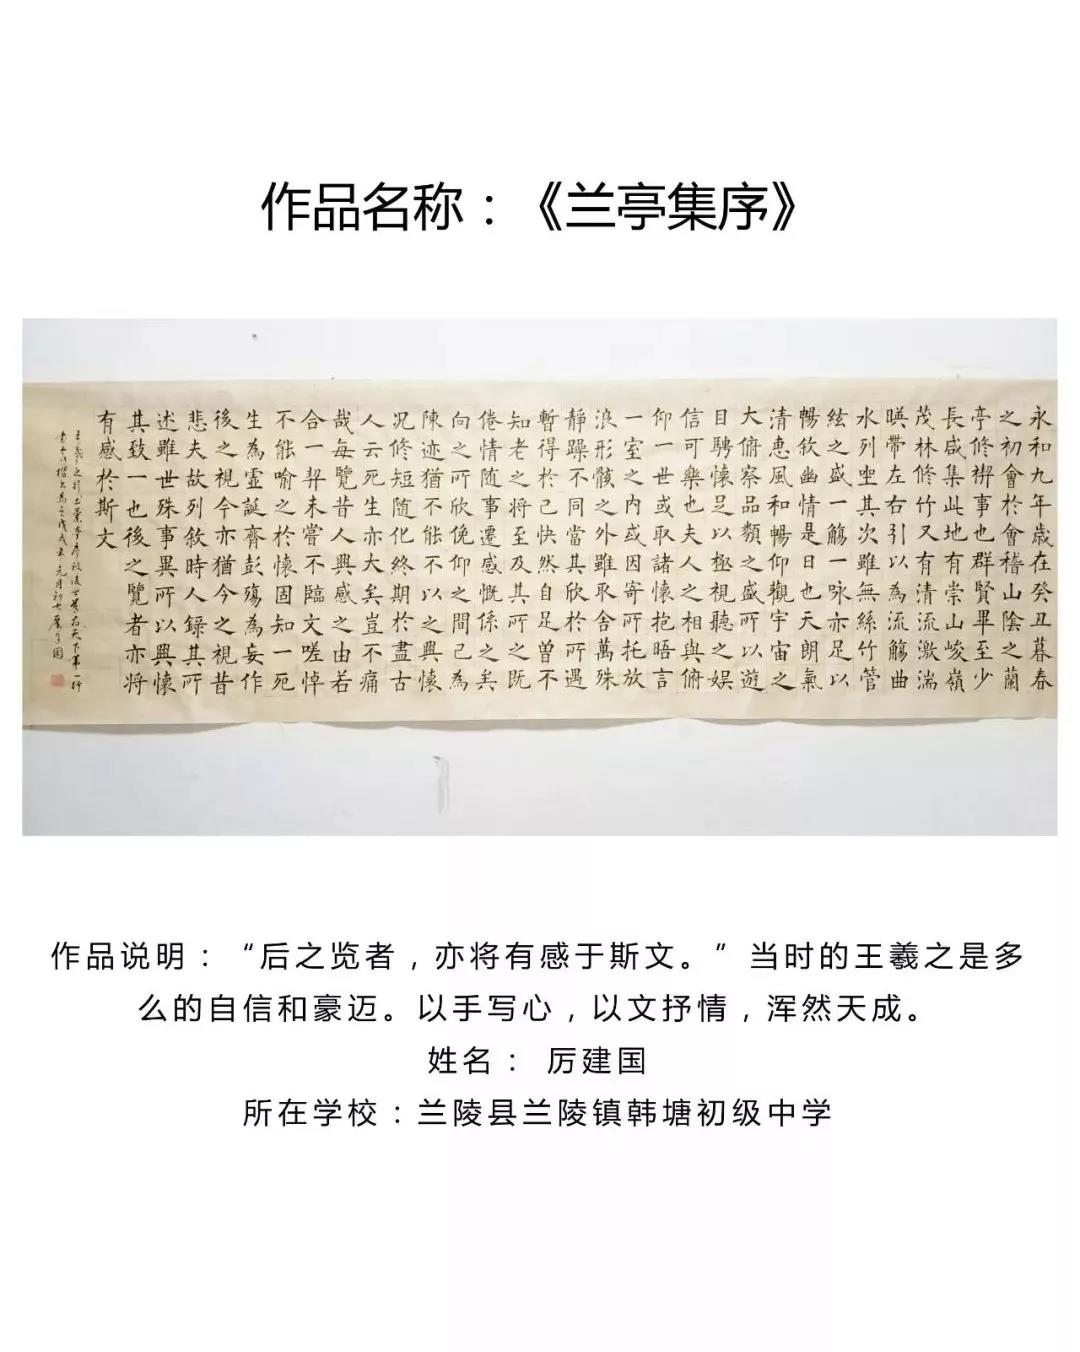 作品名称：《兰亭集序》
永和九年歲在癸丑暮春
之初會於會稽山陰之蘭
亭修禊事也群賢畢至少
長咸集此地有崇山峻嶺
茂林修竹又有清流激湍
暎帶左右引以為流觴曲
水列坐其次雖無絲竹管
絃之盛一觴一咏亦足以
暢敘幽情是日也天朗氣
清惠風和暢仰觀宇宙之
大俯察品類之盛所以遊
目騁懷足以極視聽之娛
信可樂也夫人之相與俯
仰一世或取諸懷抱晤言
一室之內或因寄所托放
浪形骸之外雖取舍萬殊
靜躁不同當其欣於所遇
暫得於己快然自足曾不
知老之將至及其所之既
倦情随事遷感慨係之矣
向之所欣俛仰之間已為
陳迹猶不能不以之興懷
况修短随化終期於盡古
人云死生亦大矣豈不痛
哉每覽昔人興感之由若
合一契未嘗不臨文嗟悼
不能喻之於懷固知一死
生為虛誕齊彭殤為妄作
後之視今亦猶今之視昔
悲夫故列敘時人錄其所
述雖世殊事異所以興懷
其致一也後之覽者亦將
有感於斯文
王羲之行書蘭亭序後世天下第一行
元月初七
作品说明：“后之览者，亦将有感于斯文。”当时的王羲之是多
么的自信和豪迈。以手写心，以文抒情，浑然天成。
姓名： 厉建国
所在学校：兰陵县兰陵镇韩塘初级中学